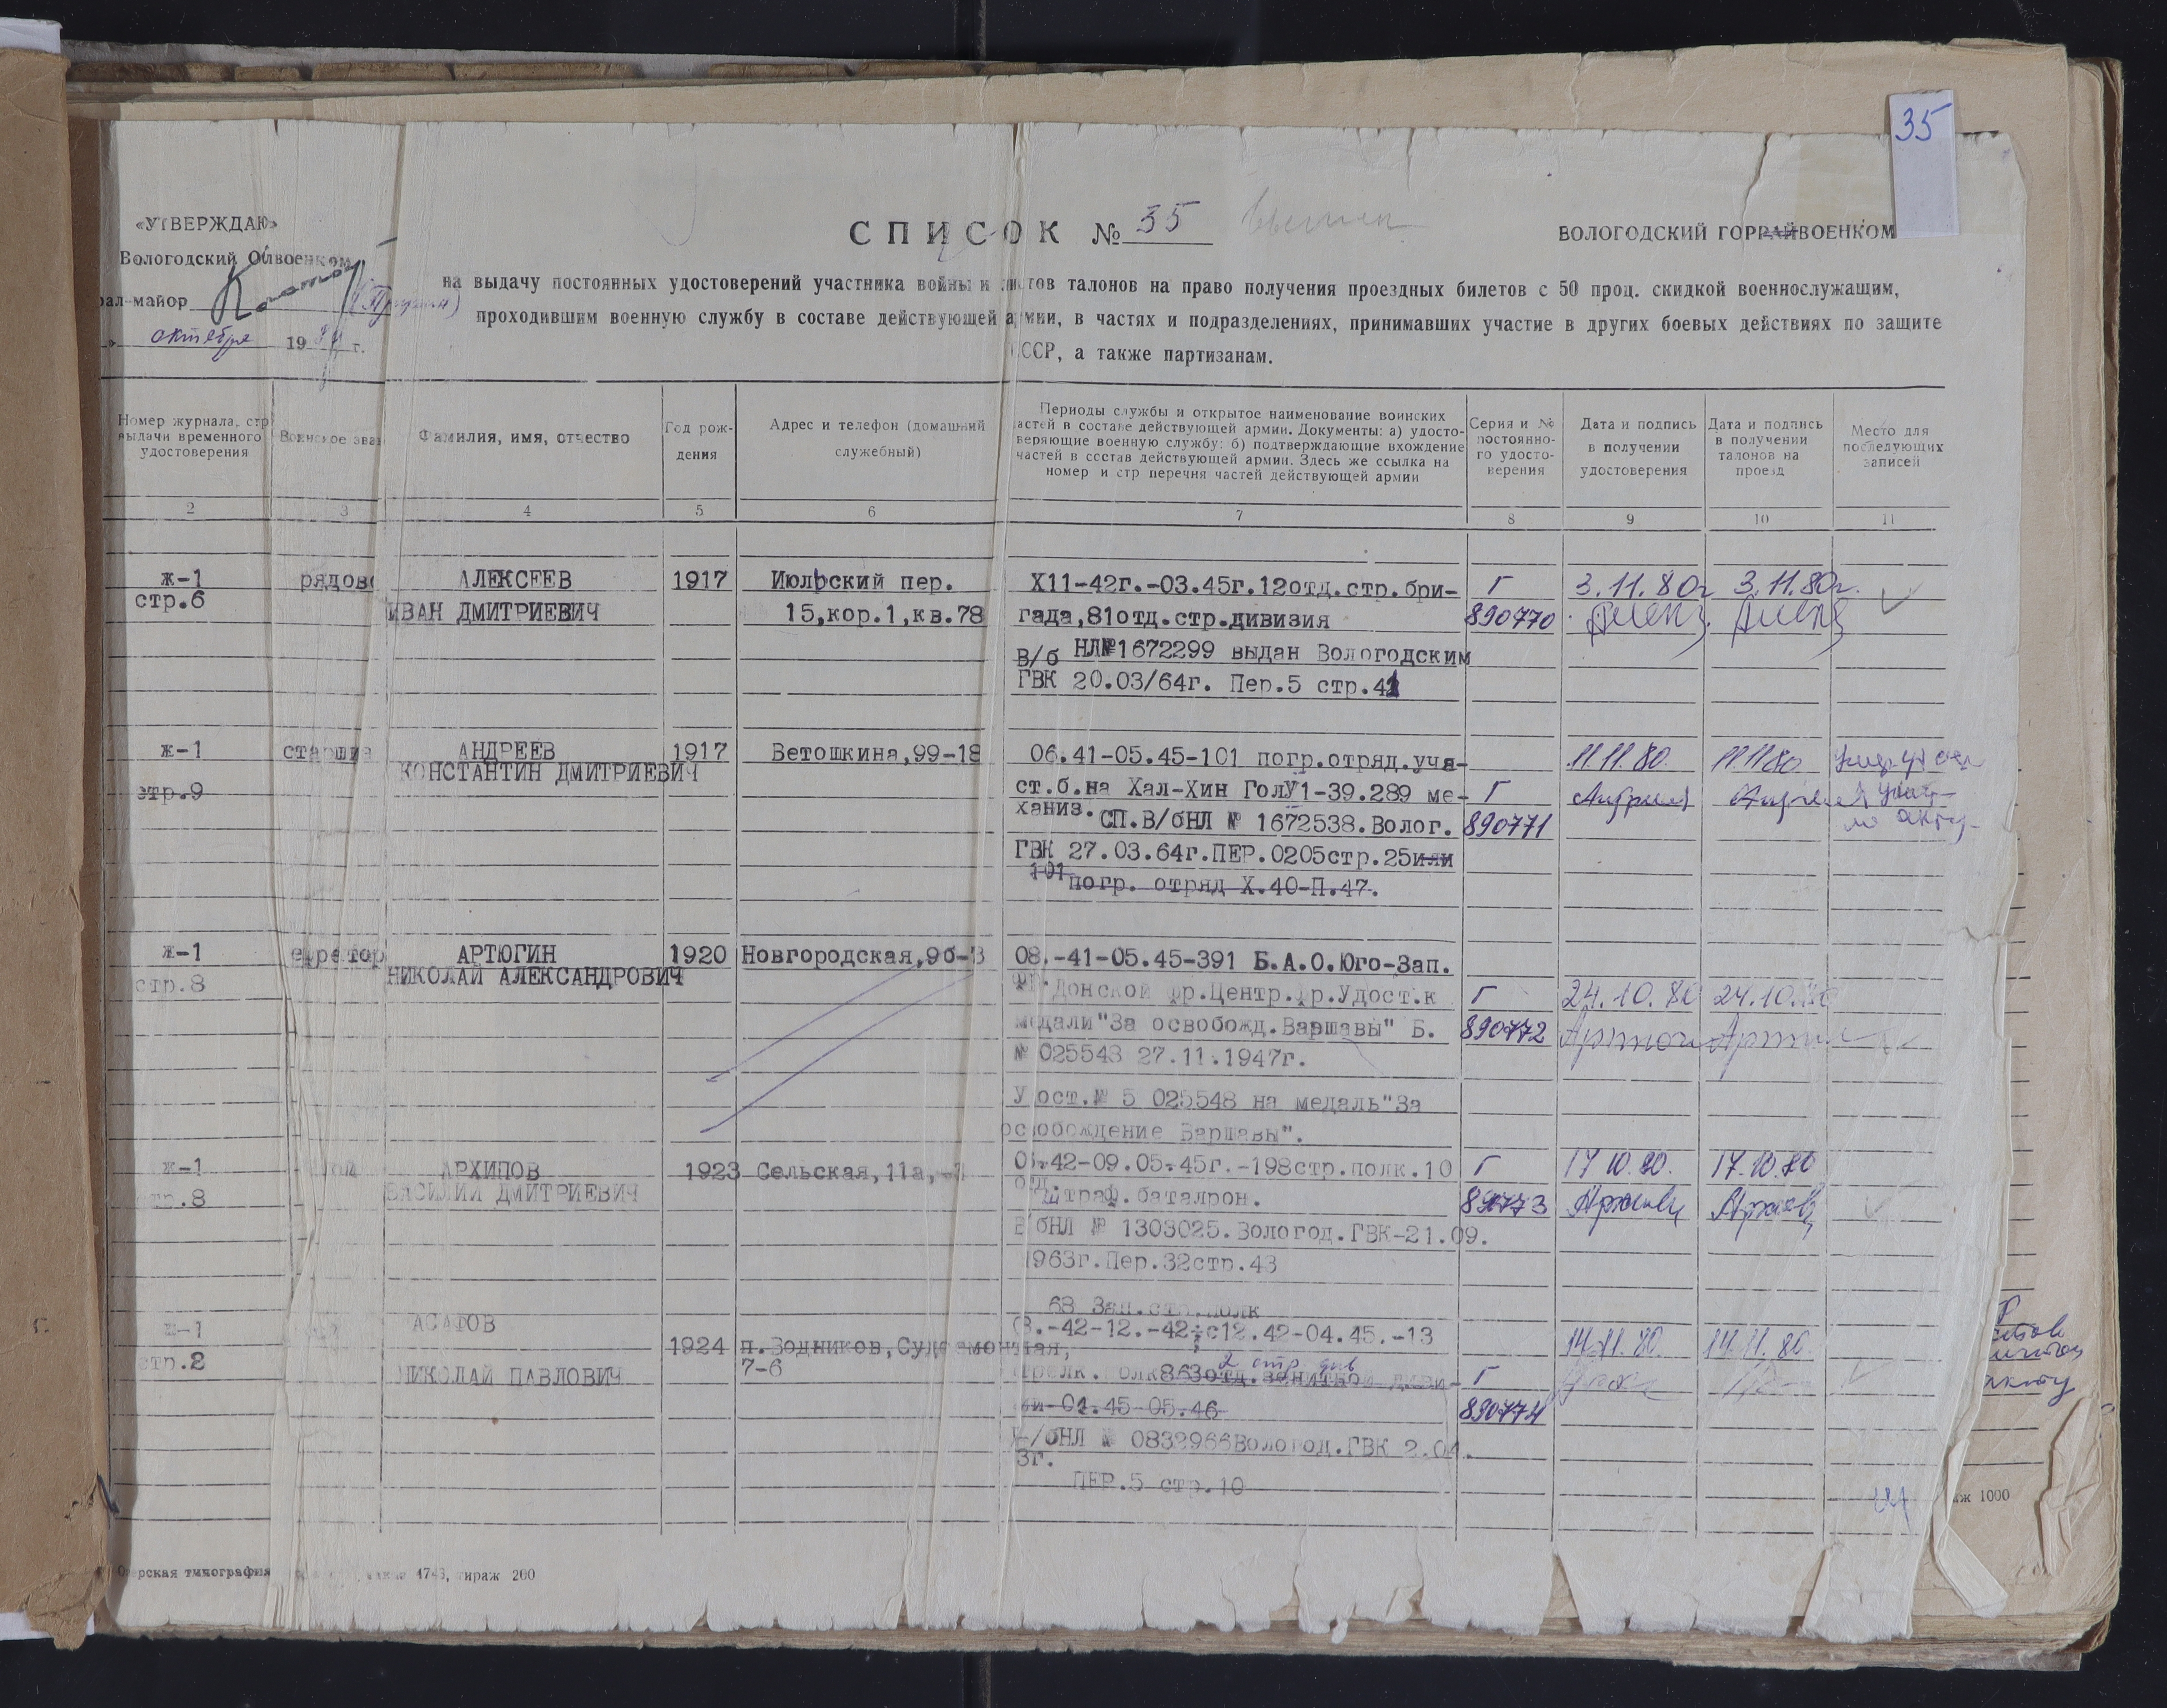 35
«УТВЕРЖДАЮ»
Вологодский Облвоенком
рал-майор
октября 19 г.
СПИСОК № 35
ВОЛОГОДСКИЙ ГОРРАЙВОЕНКОМ
на выдачу постоянных удостоверений участника войны и листов талонов на право получения проездных билетов с 50 проц. скидкой военнослужащим,
проходившим военную службу в составе действующей армии, в частях и подразделениях, принимавших участие в других боевых действиях по защите
СССР, а также партизанам.
Номер журнала, стр
выдачи временного
удостоверения
Воинское зван
Фамилия, имя, отчество
Год рож-
дения
Адрес и телефон (домашний
служебный)
Периоды службы и открытое наименование воинских
частей в составе действующей армии. Документы: а) удосто-
веряющие военную службу; б) подтверждающие вхождение
частей в состав действующей армии. Здесь же ссылка на
номер и стр перечня частей действующей армии
Серия и №
постоянно-
го удосто-
верения
Дата и подпись
в получении
удостоверения
Дата и подпись
в получении
талонов на
проезд
Место для
последующих
записей
2 3 4 5 6 7 8 9 10 11
ж-1 рядово АЛЕКСЕЕВ 1917 Июльский пер. Х11-42г.-03.45г.12отд.стр.бри- Г 3.11.80г 3.11.80г.
стр.6 ИВАН ДМИТРИЕВИЧ 15,кор.1,кв.78 гада,81отд.стр.дивизия 890770
В/б НЛ№1672299 выдан Вологодским
ГВК 20.03/64г. Пер.5 стр.41
ж-1 старшина АНДРЕЕВ 1917 Ветошкина,99-18 06.41-05.45-101 погр.отряд.уча- 11.11.80. 11.11.80
КОНСТАНТИН ДМИТРИЕВИЧ
стр.9 ст.б.на Хал-Хин ГолУ1-39.289 ме- Г
ханиз. СП.В/бНЛ № 1672538.Волог. 890771
ГВК 27.03.64г.ПЕР.0205стр.25или
101 погр. отряд Х.40-П.47.
ж-1 ефрейтор АРТЮГИН 1920 Новгородская,9б-3 08.-41-05.45-391 Б.А.О.Юго-Зап.
НИКОЛАЙ АЛЕКСАНДРОВИЧ
стр.8 фр. Донской фр.Центр.фр.Удост.к Г 24.10.80 24.10.80
медали"За освобожд.Варшавы" Б. 890772
№ 025548 27.11.1947г.
Удост.№ 5 025548 на медаль"За
освобождение Варшавы".
ж-1 АРХИПОВ 1923 Сельская,11а, 42-09.05.45г.-198стр.полк.10 Г 17 10.80. 17.10.80
стр.8 ВАСИЛИЙ ДМИТРИЕВИЧ отд. штраф.баталрон. 890773
В/бНЛ № 1303025.Вологод.ГВК-21.09.
1963г.Пер.32стр.43
АСАФОВ 68 Зап.стр.полк
ж-1 -42-12.-42;с12.42-04.45.-13 14.11.80. 14.11.80.
1924 п.Водников,Судоремонтная,
2 стр див
стр.2 НИКОЛАЙ ПАВЛОВИЧ 7-6 стрелк. полк863отд.зенитной диви- Г
зии-04.45-05.46 890774
В/бНЛ № 0832966Вологод.ГВК 2.04.
3г.
ПЕР.5 стр.10
ж 1000
рская типография 4743, тираж 200